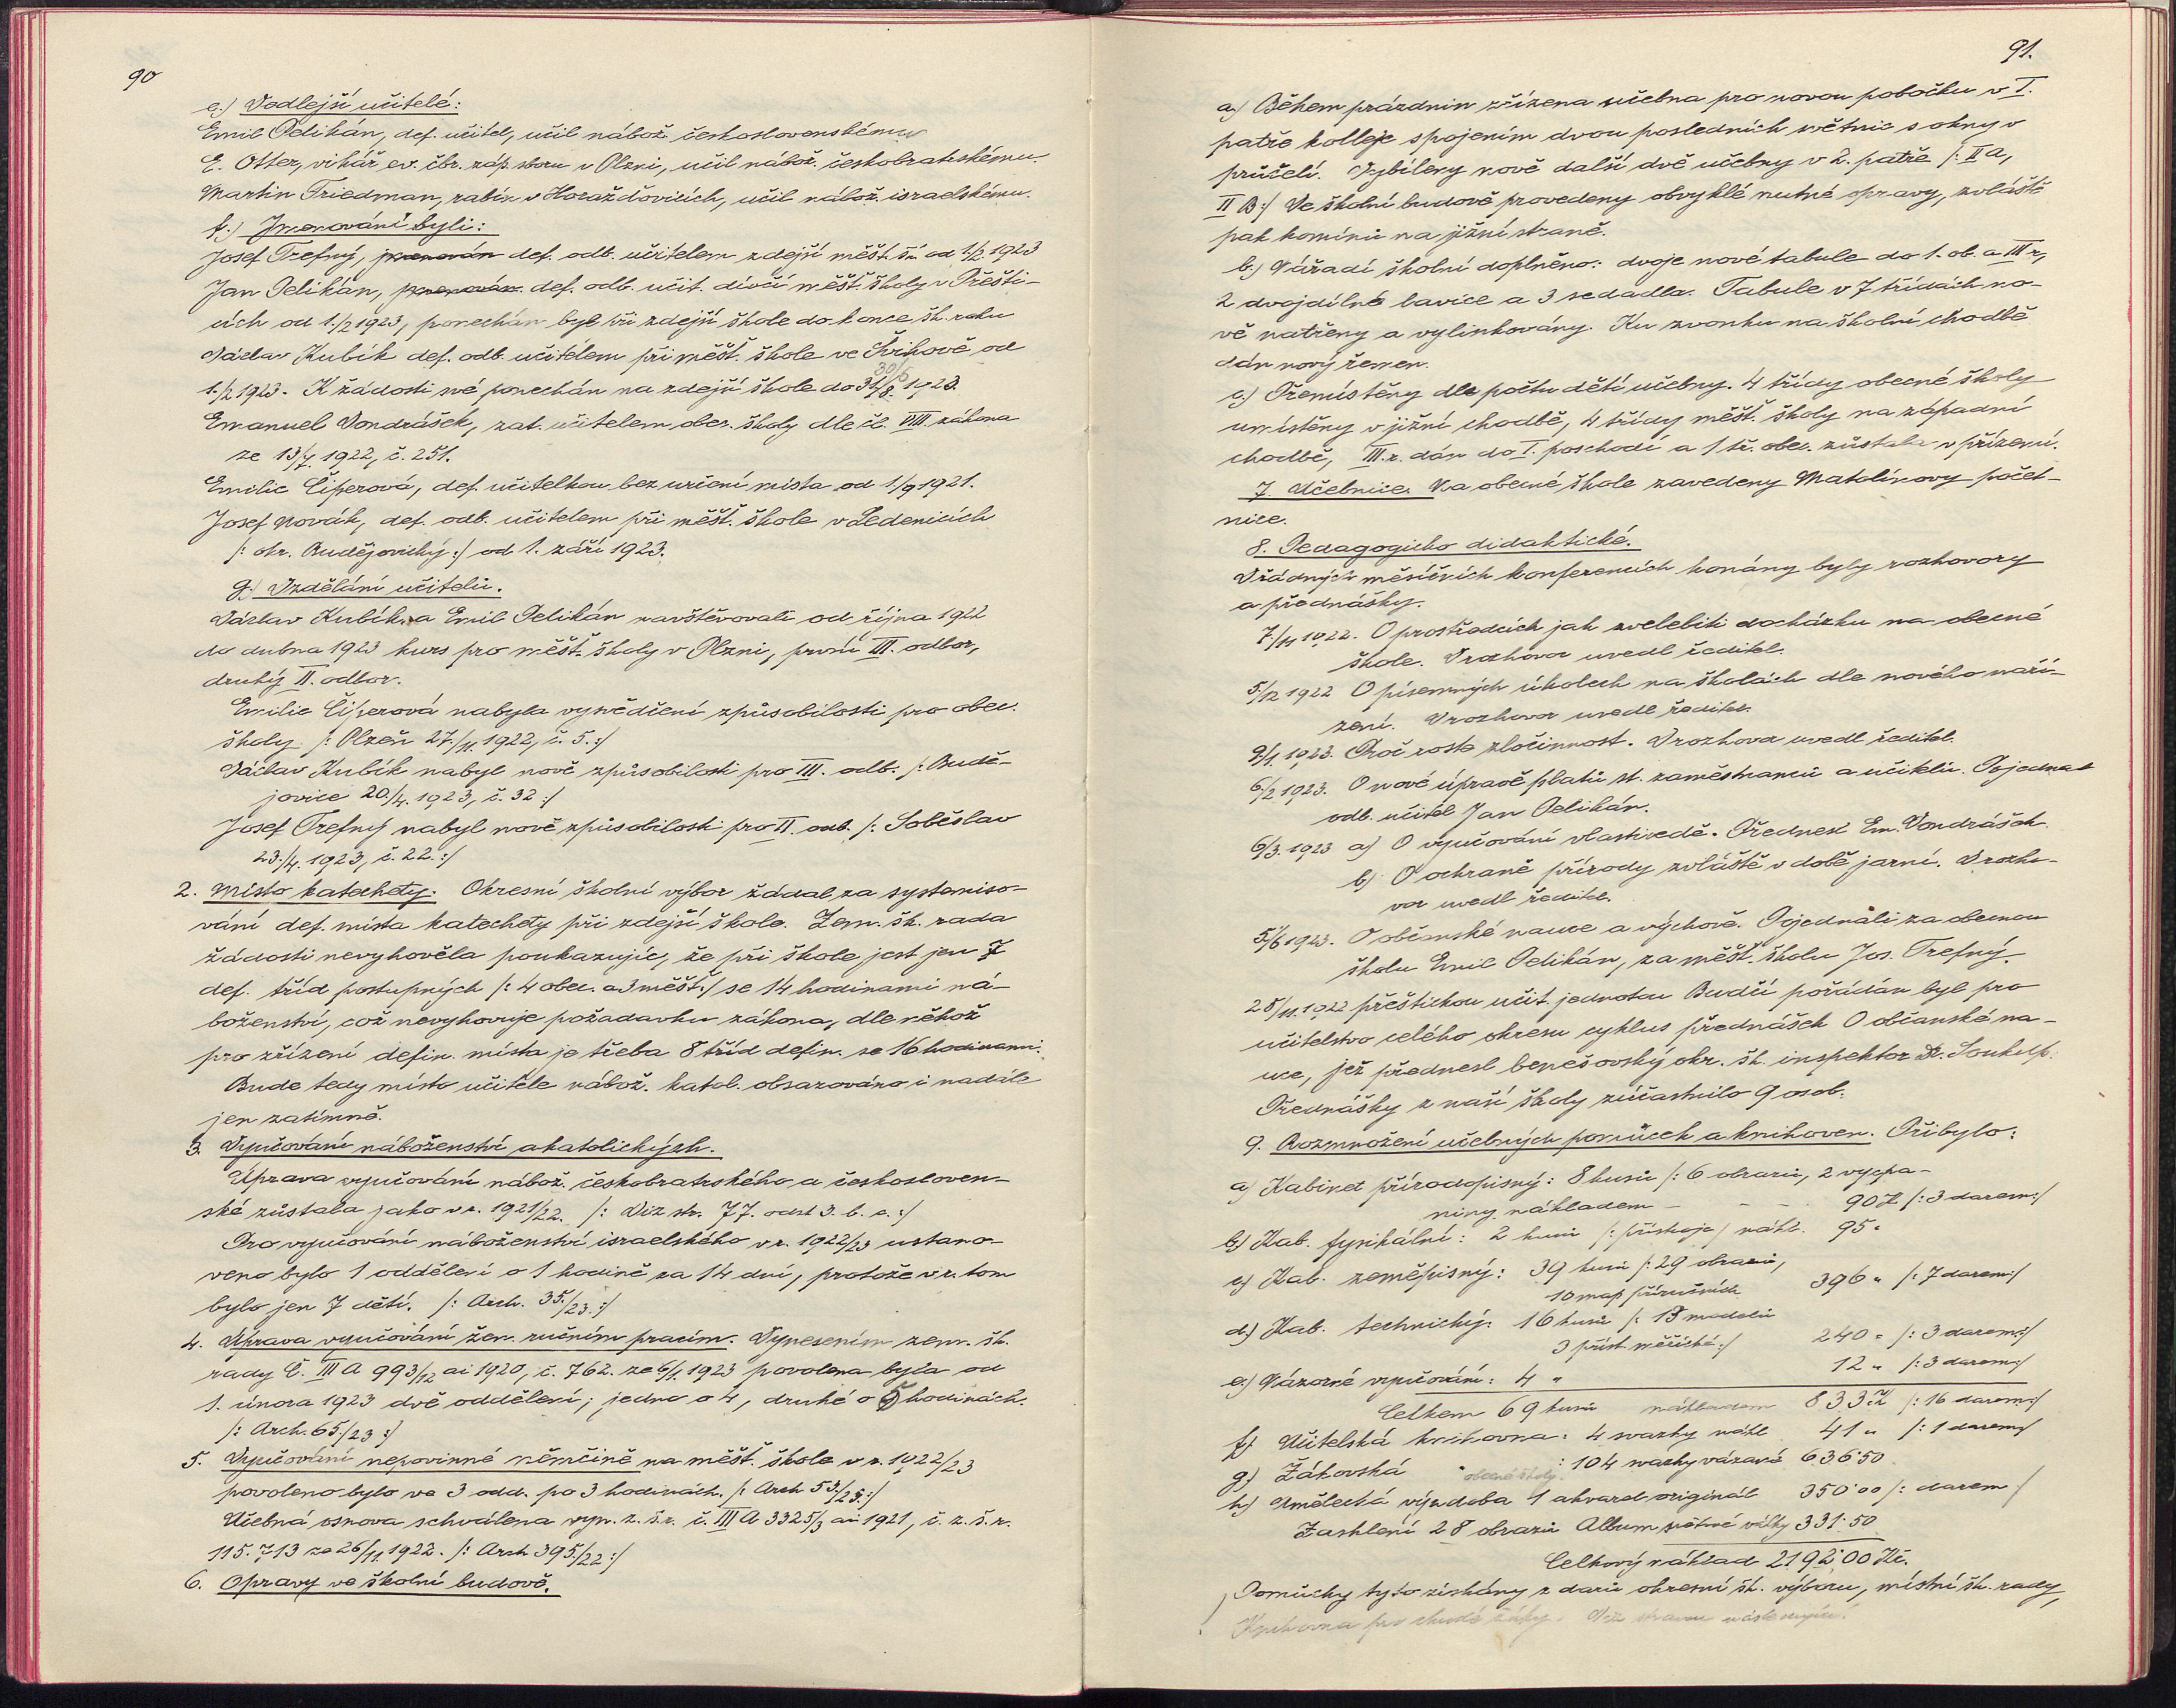 90
e.) Vedlejší učitelé:
Emil Pelikán, def. učitel, učil nábož. československému
E. Otter, vikář ev. čbr. záp. sboru v Plzni, učil nábož. českobratrskému.
Martin Friedman, rabín v Horažďovicích, učil nábož. israelskému.
f.) Jmenováni byli:
Josef Trefný, jmenován def. odb. učitelem zdejší měšt. šk. od 1/2 1923
Jan Pelikán, jmenován def. odb. učit. dívčí měšť. školy v Přešti-
cích od 1./2 1923, ponechán byl při zdejší škole do konce šk. roku
Václav Kubík def. odb. učitelem při měšť. škole ve Švihově od
30/6
1./2 1923. K žádosti své ponechán na zdejší škole do 31/8. 1923.
Emanuel Vondrášek, zat. učitelem obec. školy dle čl. VIII. zákona
ze 13/7. 1922, č. 251.
Emilie Čiperová, def. učitelkou bez určení místa od 1./9 1921.
Josef Novák, def. odb. učitelem při měšť. škole v Ledenicích
/: okr. Budějovický :/ od 1. září 1923.
g.) Vzdělání učitelů.
Václav Kubík a Emil Pelikán navštěvovali od října 1922
do dubna 1923 kurs pro měšť. školy v Plzni, první III. odbor,
druhý II. odbor.
Emilie Čiperová nabyla vysvědčení způsobilosti pro obec.
školy /: Plzeň 27./11. 1922, č. 5. :/
Václav Kubík nabyl nově způsobilosti pro III. odb. /: Budě-
jovice 20./4. 1923, č. 32 :/
Josef Trefný nabyl nově způsobilosti pro II. odb. /: Soběslav
23./4. 1923, č. 22. :/
2. Místo katechety. Okresní školní výbor žádal za systemiso-
vání def. místa katechety při zdejší škole. Zem. šk. rada
žádosti nevyhověla poukazujíc, že při škole jest jen 7
def. tříd postupných /: 4 obec. a 3 měšť :/ se 14 hodinami ná-
boženství, což nevyhovuje požadavku zákona, dle něhož
pro zřízení defin. místa je třeba 8 tříd defin. se 16 hodinami.
Bude tedy místo učitele nábož. katol. obsazováno i nadále
jen zatímně.
3. Vyučování náboženství akatolických.
Úprava vyučování nábož. českobratrského a českosloven-
ské zůstala jako v r. 1921/22. /: Viz str. 77. odst. 3. b. c. :/
Pro vyučování náboženství israelského v r. 1922/23 ustano-
veno bylo 1 oddělení o 1 hodině za 14 dní, protože v r. tom
bylo jen 7 dětí. /: Arch. 35./23. :/
4. Úprava vyučování žen. ručním pracím. Vynesením zem. šk.
rady č. III A 993/12 ai 1920, č. 762. ze 6/1. 1923 povolena byla od
1. února 1923 dvě oddělení; jedno o 4, druhé o 5 hodinách.
/: Arch. 65./23 :/
5. Vyučování nepovinné němčině na měšť. škole v r. 1922/23
povoleno bylo ve 3 odd. po 3 hodinách. /: Arch 53./23. :/
Učebná osnova schválena vyn. z. š. r. č. III A 3325/3 ai 1921, č. z. š. r.
115.713 ze 26/11. 1922. /: Arch 395./22 :/
6. Opravy ve školní budově.
91.
a.) Během prázdnin zřízena učebna pro novou pobočku v I.
patře kolleje spojením dvou posledních světnic s okny v
průčelí. Vybíleny nově další dvě učebny v 2. patře /: II A,
II B :/ Ve školní budově provedeny obvyklé nutné opravy, zvláště
pak komínů na jižní straně.
b.) Nářadí školní doplněno: dvoje nové tabule do 1. ob. a III r,
2 dvojdílné lavice a 3 sedadla. Tabule v 7 třídách no-
vě natřeny a vylinkovány. Ku zvonku na školní chodbě
dán nový řemen.
c.) Přemístěny dle počtu dětí učebny. 4 třídy obecné školy
umístěny v jižní chodbě, 4 třídy měšť. školy na západní
chodbě, III. r. dán do I. poschodí a 1 tř. obec. zůstala v přízemí.
7. Učebnice. Na obecné škole zavedeny Matolínovy počet-
nice.
8. Pedagogicko didaktické.
V řádných měsíčních konferencích konány byly rozhovory
a přednášky.
7./11 1922. O prostředcích jak zvelebiti docházku na obecné
škole. V rozhovor uvedl ředitel.
5/12 1922 O písemných úkolech na školách dle nového naří-
zení. V rozhovor uvedl ředitel.
9/1. 1923. Proč roste zločinnost. V rozhovor uvedl ředitel.
6/2 1923. O nové úpravě platů st. zaměstnanců a učitelů. Pojednal
odb. učitel Jan Pelikán.
6/3. 1923 a) O vyučování vlastivědě. Přednesl Em. Vondrášek.
b) O ochraně přírody zvláště v době jarní. V rozho-
vor uvedl ředitel.
5./6 1923. O občanské nauce a výchově. Pojednali za obecnou
školu Emil Pelikán, za měšť. školu Jos. Trefný.
28/11. 1922 přeštickou učit. jednotou Budčí pořádán byl pro
učitelstvo celého okresu cyklus přednášek O občanské na-
uce, jež přednesl benešovský okr. šk. inspektor Dr. Soukup.
Přednášky z naší školy zúčastnilo 9 osob.
9. Rozmnožení učebných pomůcek a knihoven. Přibylo:
a) Kabinet přírodopisný: 8 kusů /: 6 obrazů, 2 vycpa-
niny nákladem - - - 90 K /: 3 darem :/
b) Kab. fysikální: 2 kusů /: přístroje / nákl. 95 "
c) Kab. zeměpisný: 39 kusů /: 29 obrazů,
10 map příručních 396 " /: 7 darem :/
d.) Kab. technický: 16 kusů /: 13 modelů
3 příst. měřické :/ 240 " /: 3 darem :/
e.) Názorné vyučování: 4 " 12 " /: 3 darem :/
Celkem 69 kusů nákladem 833 K /: 16 darem :/
f) Učitelská knihovna: 4 svazky nákl. 41 " /: 1 darem /
g) Žákovská " obecné školy : 104 svazky vázané 636·50
h) Umělecká výzdoba 1 akvarel originál 350·00 /: darem :/
Zasklení 28 obrazů Album světové války 331·50
Celkový náklad 2192·00 Kč.
Pomůcky tyto získány z darů okresní šk. výboru, místní šk. rady,
Knihovna pro chudé žáky. Viz stranu následující!